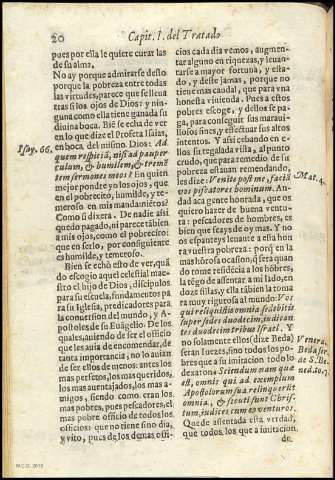 20 Capit. I. del Tratado
pues por ella le quiere curar las
de su alma.
No ay porque admirarse desto
porque la pobreza entre todas
las virtudes, parece que se llena
tras si los ojos de Dios: y nin-
guna como ella tiene ganada su
diuina boca. Biē se echa de ver
en lo que dize el Profeta Isaias,
en boca del mismo. Dios: Ad
quem respiciā, nisi ad pauper
culum, & humilem, & tremē
tem sermones meos? En quien
mejor pondre yo los ojos, que
en el pobrecito, humilde, y te-
meroso en mis mandamiētos?
Como si dixera. De nadie assi
quedo pagado, ni parece tābien
a mis ojos, como el pobrecito:
que en serlo, por consiguiente
es humilde, y temeroso.
Bien se echò esto de ver, quā
do escogio aquel celestial maes-
tro el hijo de Dios, discipulos
para su escuela, fundamentos pa
ra su Iglesia, predicadores para
la conuersion del mundo, y A-
postoles de su Euāgelio. De los
quales, auiendo de ser el oficio
que les auia de encomendar, de
tanta importancia, no lo auian
de ser ellos de menos: antes los
mas perfetos, los mas queridos,
los mas auentajados, los mas a-
migos, siendo como eran los
mas pobres, pues pescadores, el
mas pobre oficio de todos los
oficios: que no tiene sino dia,
y vito, pues de los demas ofi-
Isay. 66.
cios cada dia vemos, augmen-
tar alguno en riquezas, y leuan-
tarse a mayor fortuna, y esta-
do, y deste jamas, porque no
tiene mas caudal, que para vna
honesta viuienda. Pues a estos
pobres escoge, y dellos se pa-
ga, para conseguir sus marauì-
llosos fines, y efectuar sus altos
intentos. Y assi echando en e-
llos su vista regalada, al punto
crudo, que para remedio de su
pobreza estauan remendando,
les dize: Venite post me, faciā
vos piscatores hominum. An-
dad aca gente honrada, que os
quiero hazer de buena ventu-
ra: pescadores de hombres, es
bien que seays de oy mas. Y no
os espanteys leuante a essa hon
ra vuestra pobreza: porq̄ en la
mas hōrosa ocasion, q̄ sera quan
do tome residēcia a los hōbres,
la tēgo de assentar a mi lado, en
doze sillas, y ella tābien la toma
ra muy rigurosa al mundo: Vos
qui reliquistis omnia, sedebitis
super sedes duodecim, iudican
tes duodecim tribus Israel. Y
no solamente ellos (dize Beda)
seran juezes, sino todos los po-
bres que a su imitacion todo lo
dexaron: Sciendum nam que
est, omnis qui ad exemplum
Apostolorum sua relinquerūt
omnia, & secuti sunt Chris-
tum, iudices cum eo venturos.
Quede assentada esta verdad,
que todos, los que a imitacion,
de
Mat. 4.
Venera.
Beda ser.
de S. Be-
M.C.D. 2010